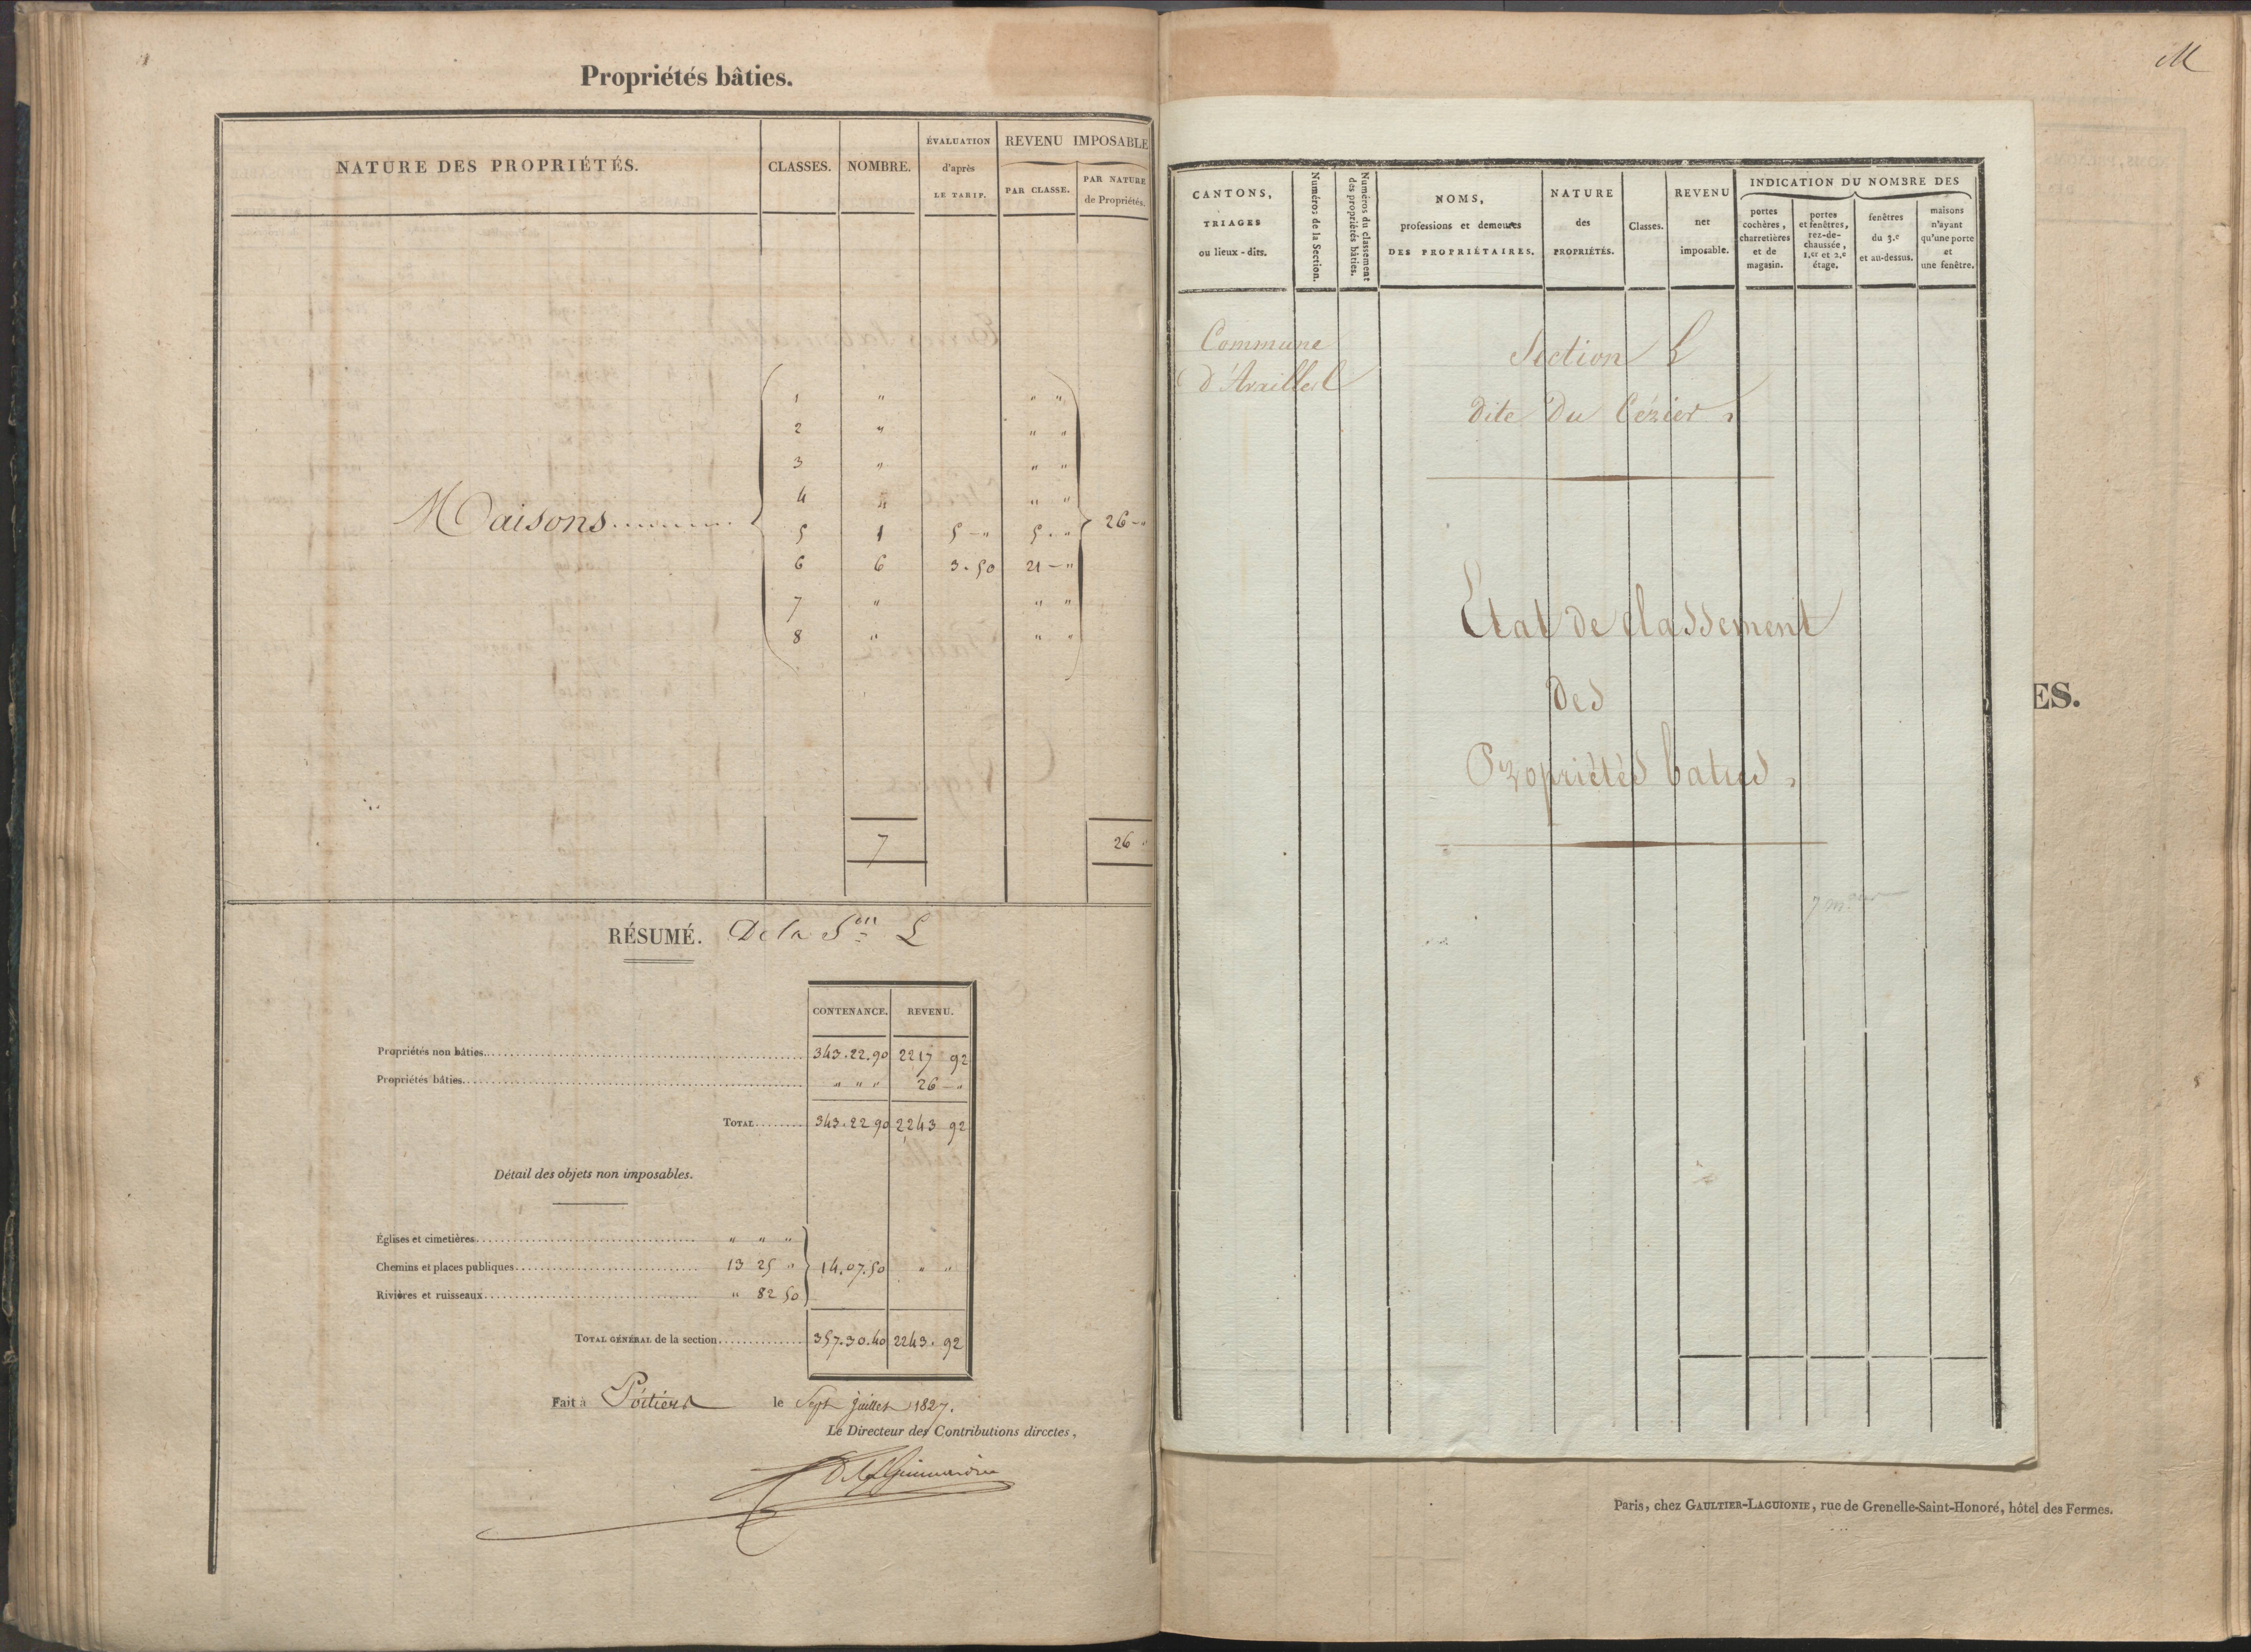 Propriétés bâties.
NATURE DES PROPRIÉTÉS.
CLASSES.
NOMBRE.
ÉVALUATION
d'après
LE TARIF.
REVENU IMPOSABLE
PAR CLASSE.
PAR NATURE
de Propriétés.
1 " " "
2 " " "
3 " " "
4 " " "
Maisons
5 1 5 - " 5 . "
26 - "
6 6 3.50 21 - "
7 " " "
8 " " "
7 26 "
RÉSUMÉ. De la S.on L
CONTENANCE. REVENU.
Propriétés non bâties 343.22.90 2217 92
Propriétés bâties " " " 26 - "
TOTAL 343.22 90 2243 92
Détail des objets non imposables.
Églises et cimetières " " "
Chemins et places publiques 13 25 " 14.07.50 " "
Rivières et ruisseaux " 82 50
TOTAL GÉNÉRAL de la section 357.30.40 2243.92
Fait à Poitiers le Sept juillet 1827.
Le Directeur des Contributions directes,
M
CANTONS,
TRIAGES
ou lieux-dits.
Numéros de la Section.
Numéros du classement
des propriétés bâties.
NOMS,
professions et demeures
DES PROPRIÉTAIRES.
NATURE
des
PROPRIÉTÉS.
Classes.
REVENU
net
imposable.
INDICATION DU NOMBRE DES
portes
cochères,
charretières
et de
magasin.
portes
et fenêtres,
rez-de-
chaussée,
1.er et 2.e
étage.
fenêtres
du 3.e
et au-dessus.
maisons
n'ayant
qu'une porte
et
une fenêtre.
Commune
d'Availles
Section L
dite Du Cézier
Etat de classement
des
Propriétés baties
ES.
Paris, chez GAULTIER-LAGUIONIE, rue de Grenelle-Saint-Honoré, hôtel des Fermes.